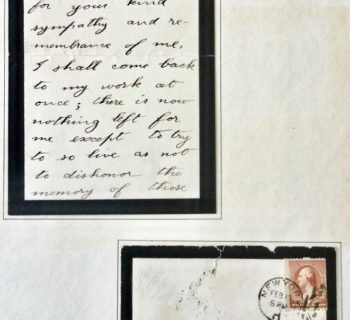 for your kind
sympathy and re-
membrance of me,
I shall come back
to my work at
once; there is now
nothing left for
me except to try
to so live as not
to dishonor the
memory of those
NEW YORK
FEB
5 PM